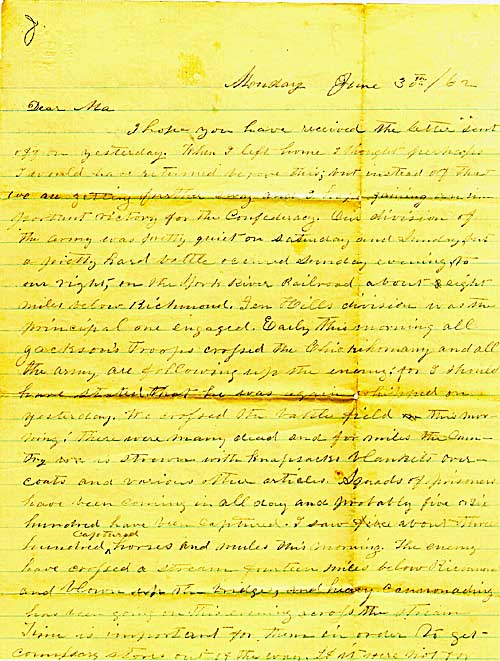 8
Monday June 30th/62
Dear Ma
I hope you have received the letter sent
off on yesterday. When I left home I thought perhaps
I would have returned before this; but instead of that
we are getting further away and I hope gaining an im-
portant victory for the Confederacy. Our division of
the army was pretty quiet on Saturday and Sunday, but
a pretty hard battle occured Sunday evening to
our right, on the York River Railroad about eight
miles below Richmond. Gen Hills division was the
principal one engaged. Early this morning all
Jackson's Troops crossed the Chickihomany and all
the army are following up the enemy; for I should
have stated that he was again whipped on
yesterday. We crossed the battle field this mor-
ning; there were many dead and for miles the Coun-
try is strewn with Knapsacks blankets over-
coats and various other articles. Squads of prisoners
have been coming in all day and probably five or six
hundred have been captured. I saw about three
hundred captured horses and mules this morning. The enemy
have crossed a stream fourteen miles below Richmond
and blown up the bridge, and heavy cannonading
has been going on this evening across the stream
Time is important for them in order to get
commissary stores out of the way. If it were not for